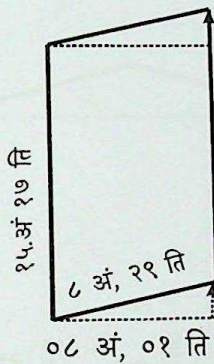 १५.अं १७ ति
८ अं, २९ ति
०८ अं, ०१ ति